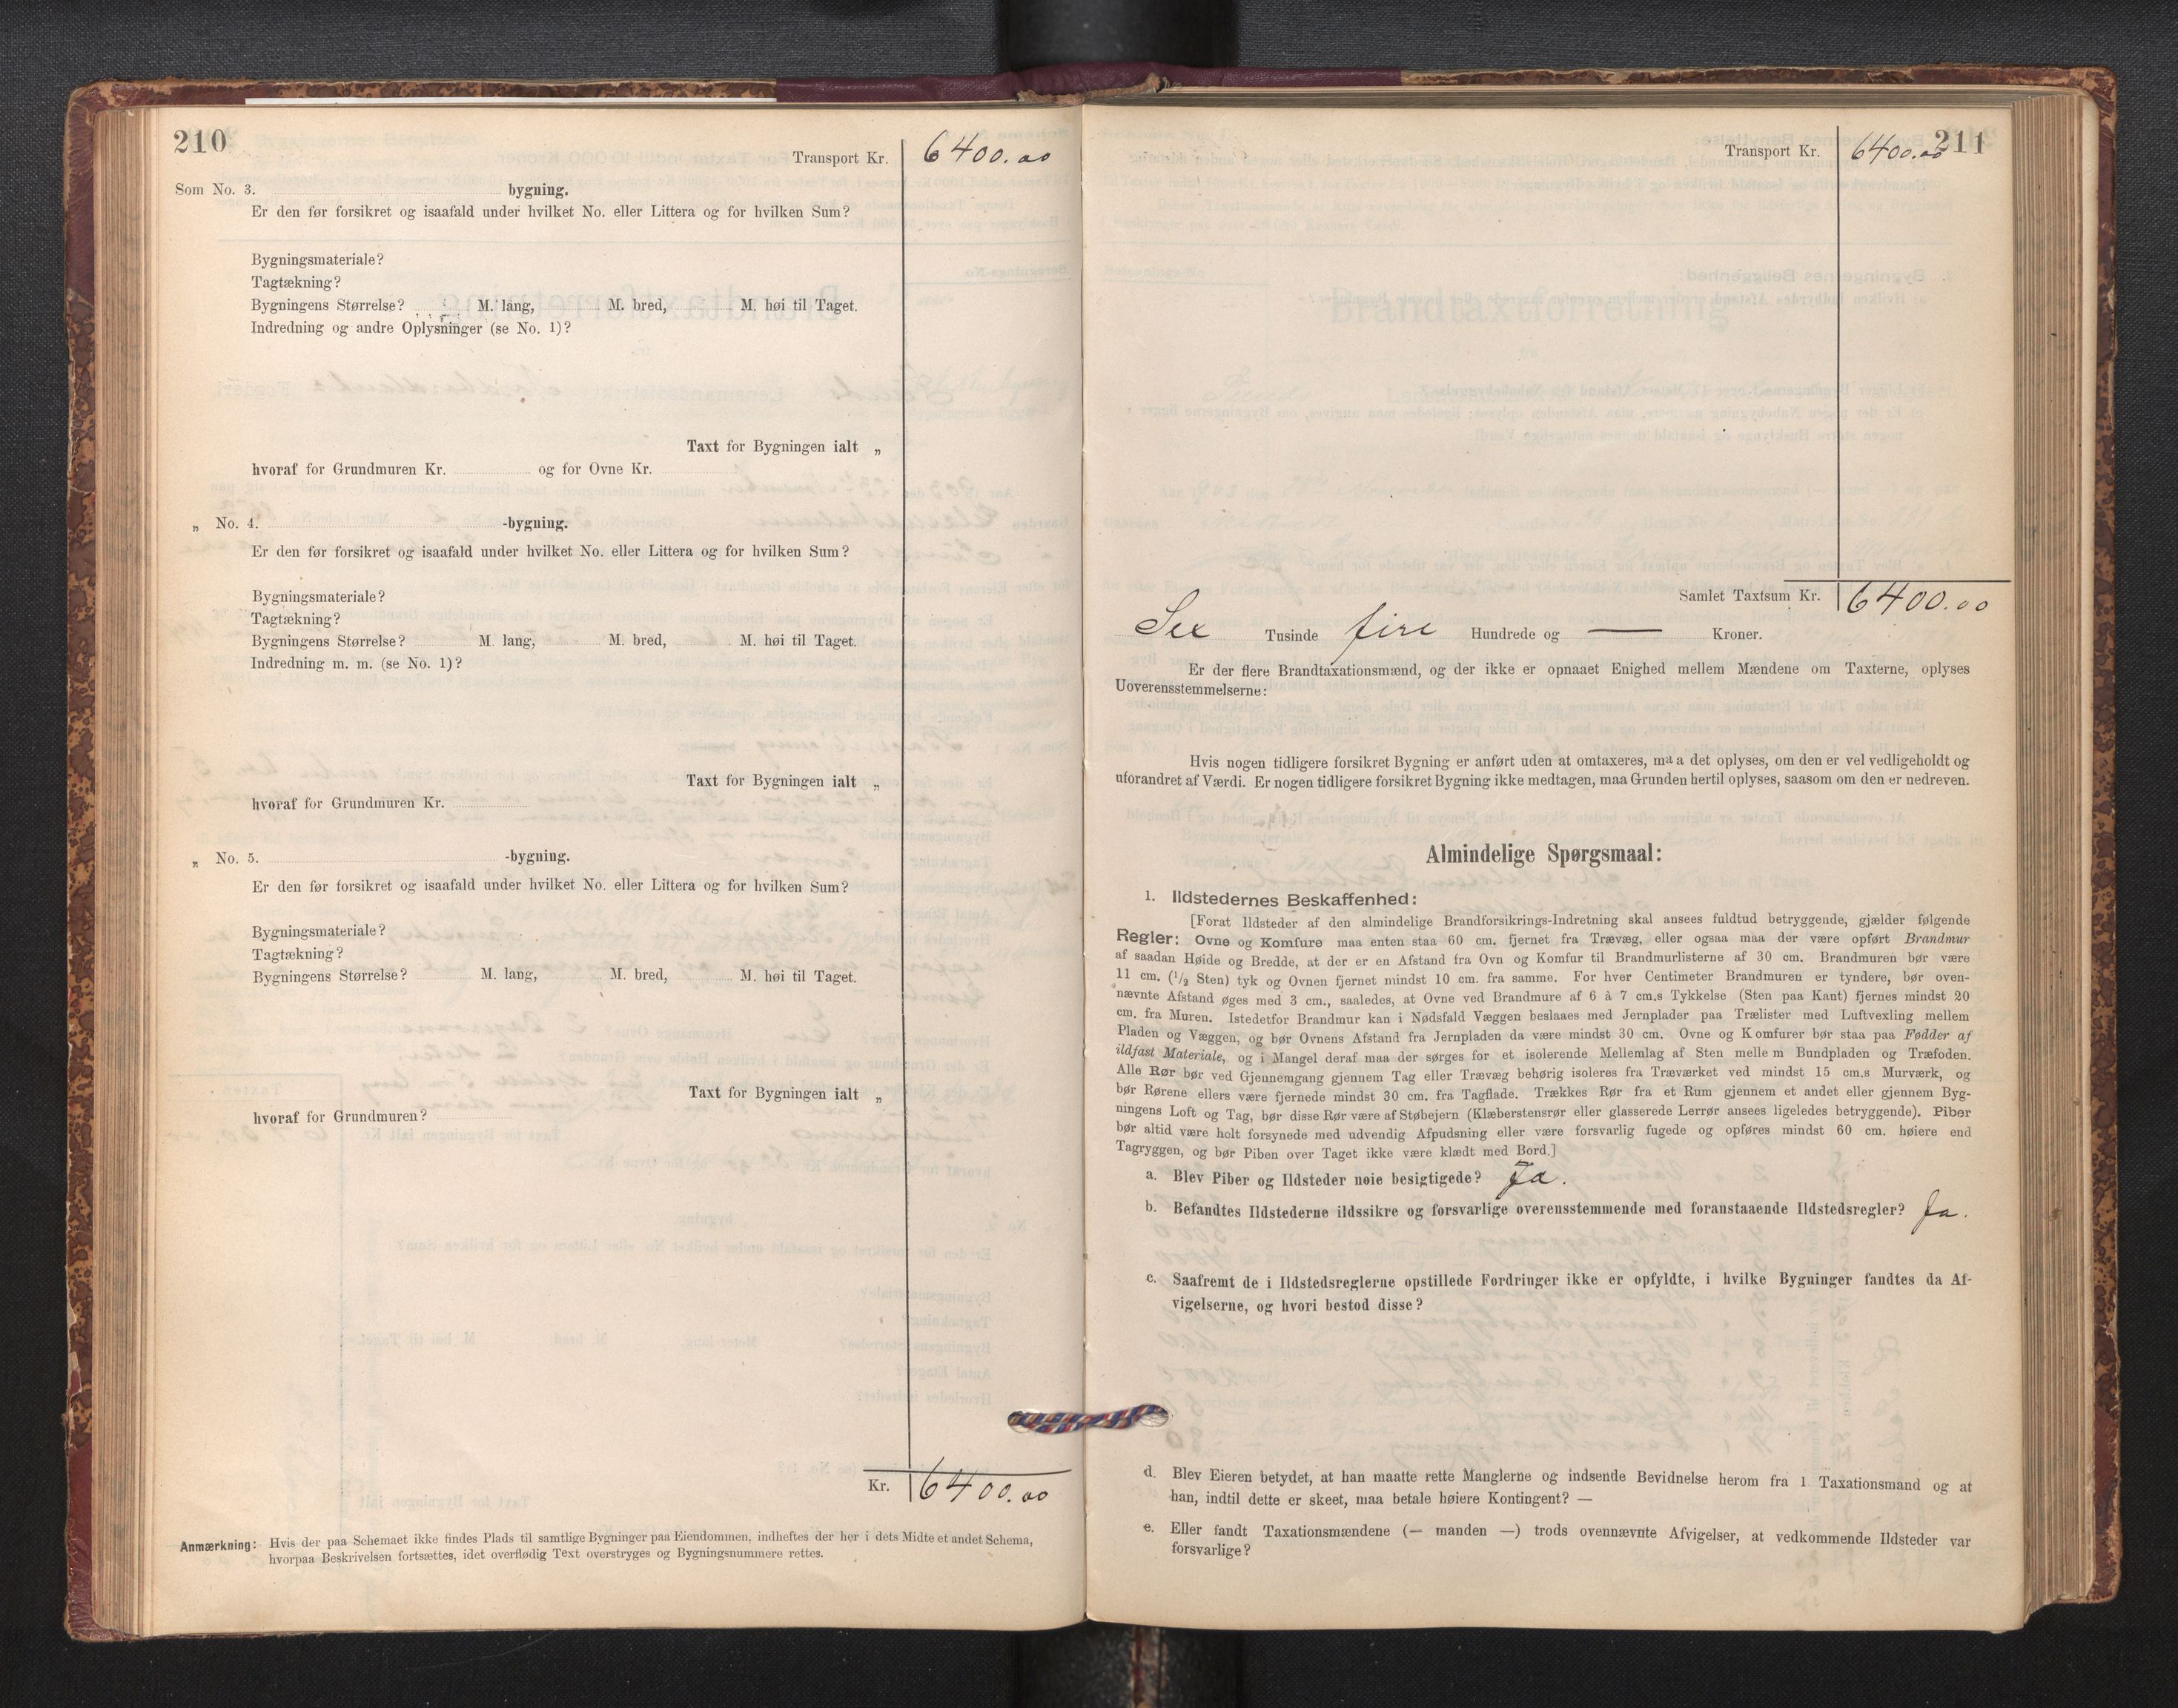 210
Transport Kr. 6400.00
Som No. 3. bygning.
Er den før forsikret og isaafald under hvilket No. eller Littera og for hvilken Sum?
Bygningsmateriale?
Tagtækning?
Bygningens Størrelse? M. lang, M. bred, M. høi til Taget.
Indredning og andre Oplysninger (se No. 1)?
Taxt for Bygningen ialt „
hvoraf for Grundmuren Kr. og for Ovne Kr.
„ No. 4. -bygning.
Er den før forsikret og isaafald under hvilket No. eller Littera og for hvilken Sum?
Bygningsmateriale?
Tagtækning?
Bygningens Størrelse? M. lang, M. bred, M. høi til Taget.
Indredning m. m. (se No. 1)?
Taxt for Bygningen ialt „
hvoraf for Grundmuren Kr.
„ No. 5. -bygning.
Er den før forsikret og isaafald under hvilket No. eller Littera og for hvilken Sum?
Bygningsmateriale?
Tagtækning?
Bygningens Størrelse? M. lang, M. bred, M. høi til Taget.
Taxt for Bygningen ialt „
hvoraf for Grundmuren?
Kr. 6400.00
Anmærkning: Hvis der paa Schemaet ikke findes Plads til samtlige Bygninger paa Eiendommen, indheftes der her i dets Midte et andet Schema,
hvorpaa Beskrivelsen fortsættes, idet overflødig Text overstryges og Bygningsnummere rettes.
211
Transport Kr. 6400.00
Samlet Taxtsum Kr. 6400.00
Sex Tusinde fire Hundrede og — Kroner.
Er der flere Brandtaxationsmænd, og der ikke er opnaaet Enighed mellem Mændene om Taxterne, oplyses
Uoverensstemmelserne:
Hvis nogen tidligere forsikret Bygning er anført uden at omtaxeres, maa det oplyses, om den er vel vedligeholdt og
uforandret af Værdi. Er nogen tidligere forsikret Bygning ikke medtagen, maa Grunden hertil oplyses, saasom om den er nedreven.
Almindelige Spørgsmaal:
1. Ildstedernes Beskaffenhed:
[Forat Ildsteder af den almindelige Brandforsikrings-Indretning skal ansees fuldtud betryggende, gjælder følgende
Regler: Ovne og Komfure maa enten staa 60 cm. fjernet fra Trævæg, eller ogsaa maa der være opført Brandmur
af saadan Høide og Bredde, at der er en Afstand fra Ovn og Komfur til Brandmurlisterne af 30 cm. Brandmuren bør være
11 cm. (1/2 Sten) tyk og Ovnen fjernet mindst 10 cm. fra samme. For hver Centimeter Brandmuren er tyndere, bør oven-
nævnte Afstand øges med 3 cm., saaledes, at Ovne ved Brandmure af 6 à 7 cm.s Tykkelse (Sten paa Kant) fjernes mindst 20
cm. fra Muren. Istedetfor Brandmur kan i Nødsfald Væggen beslaaes med Jernplader paa Trælister med Luftvexling mellem
Pladen og Væggen, og bør Ovnens Afstand fra Jernpladen da være mindst 30 cm. Ovne og Komfurer bør staa paa Fødder af
ildfast Materiale, og i Mangel deraf maa der sørges for et isolerende Mellemlag af Sten mellem Bundpladen og Træfoden.
Alle Rør bør ved Gjennemgang gjennem Tag eller Trævæg behørig isoleres fra Træværket ved mindst 15 cm.s Murværk, og
bør Rørene ellers være fjernede mindst 30 cm. fra Tagflade. Trækkes Rør fra et Rum gjennem et andet eller gjennem Byg-
ningens Loft og Tag, bør disse Rør være af Støbejern (Klæberstensrør eller glasserede Lerrør ansees ligeledes betryggende). Piber
bør altid være helt forsynede med udvendig Afpudsning eller være forsvarlig fugede og opføres mindst 60 cm. høiere end
Tagryggen, og bør Piben over Taget ikke være klædt med Bord.]
a. Blev Piber og Ildsteder nøie besigtigede? Ja.
b. Befandtes Ildstederne ildssikre og forsvarlige overensstemmende med foranstaaende Ildstedsregler? Ja.
c. Saafremt de i Ildstedsreglerne opstillede Fordringer ikke er opfyldte, i hvilke Bygninger fandtes da Af-
vigelserne, og hvori bestod disse?
d. Blev Eieren betydet, at han maatte rette Manglerne og indsende Bevidnelse herom fra 1 Taxationsmand og at
han, indtil dette er skeet, maa betale høiere Kontingent? —
e. Eller fandt Taxationsmændene (— manden —) trods ovennævnte Afvigelser, at vedkommende Ildsteder var
forsvarlige?